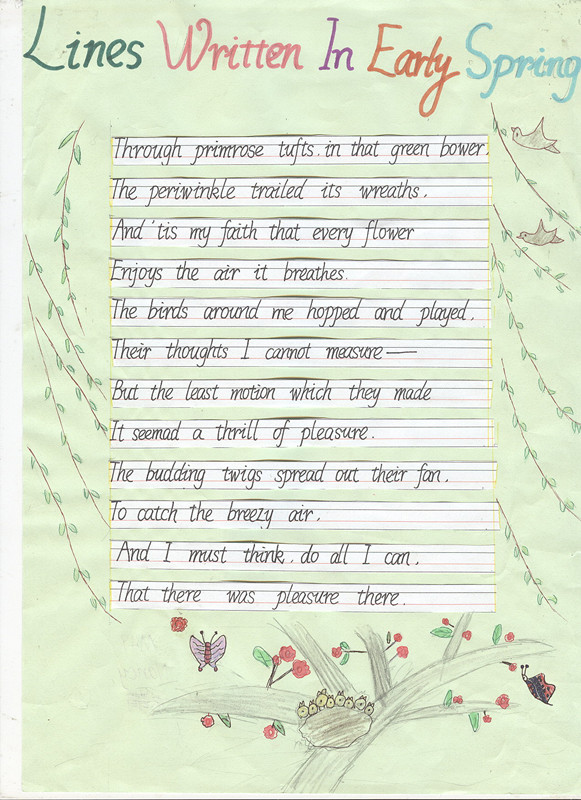 Lines Written In Early Spring
Through primrose tufts. in that green bower.
The periwinkle trailed its wreaths.
And 'tis my faith that every flower
Enjoys the air it breathes.
The birds around me hopped and played.
Their thoughts I cannot measure—
But the least motion which they made
It seemad a thrill of pleasure.
The budding twigs spread out their fan.
To catch the breezy air.
And I must think. do all I can.
That there was pleasure there.